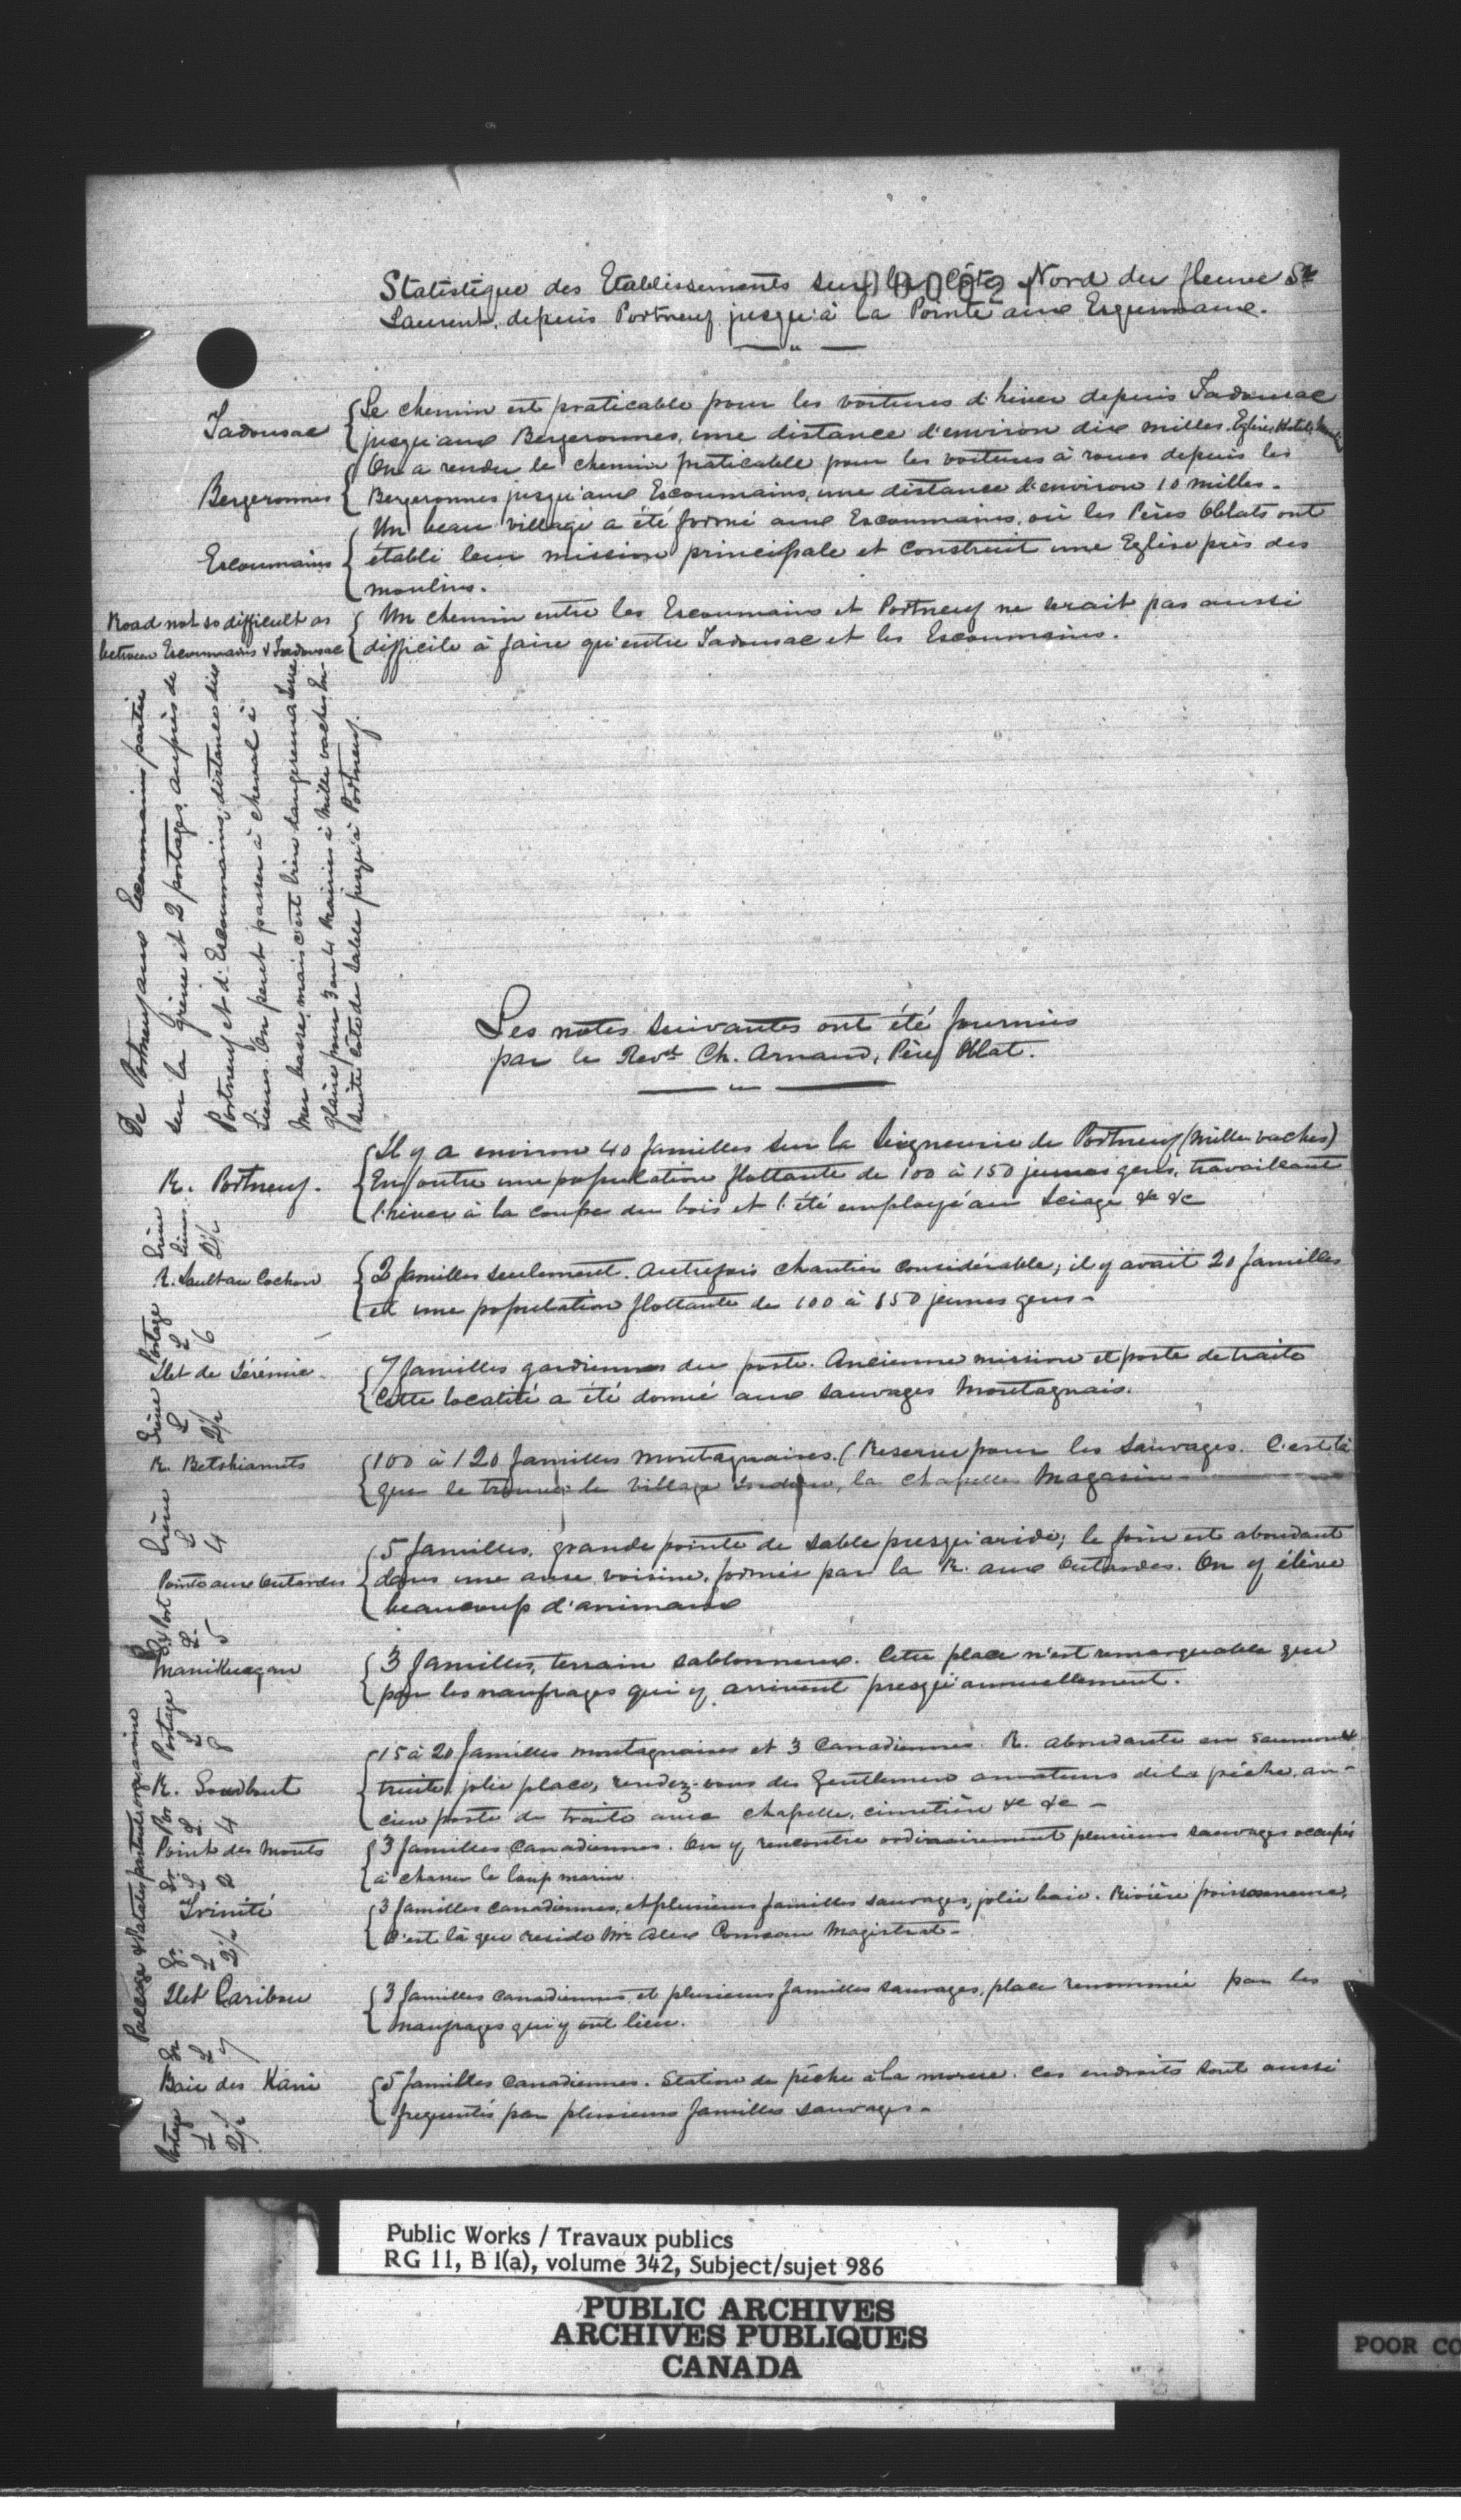 Statistique des Etablissements sur la Côte Nord du fleuve St
Laurent, depuis Portneuf jusqu'à la Pointe aux Esquimaux.
Tadousac
Le chemin est praticable pour les voitures d'hiver depuis Tadousac
jusqu'aux Bergeronnes, une distance d'environ dix milles. Eglise, Hotel,
Bergeronnes
On a rendu le chemin praticable pour les voitures à roues depuis les
Bergeronnes jusqu'aux Escoumains, une distance d'environ 10 milles.
Escoumains
Un beau village a été formé aux Escoumains, où les Pères Oblats ont
établi leur mission principale et construit une Eglise près des
moulins.
Road not so difficult as
between Escoumains & Tadousac
Un chemin entre les Escoumains et Portneuf ne serait pas aussi
difficile à faire qu'entre Tadousac et les Escoumains.
De Portneuf aux Escoumains partie
sur la grève et 2 portages, auprès de
Portneuf et d'Escoumains, distance dix
Lieues. On peut passer à cheval à
Mer basse, mais c'est bien dangereux
glaise pour 3 ou 4 à Mille vaches. En-
suite côte de sable jusqu'à Portneuf.
Les notes suivantes ont été fournies
par le Revd Ch. Arnaud, Père Oblat.
R. Portneuf.
Il y a environ 40 familles sur la Seigneurie de Portneuf (Mille vaches)
En outre une population flottante de 100 à 150 jeunes gens, travaillant
l'hiver à la coupe du bois et l'été employé au sciage &c &c
Grève
Lieues
2½
R. Sault au Cochon
2 familles seulement. Autrefois chantier considérable; il y avait 20 familles
et une population flottante de 100 à 150 jeunes gens-
Portage
L
6
Ilet de Jérémie.
7 familles gardiennes du poste. Ancienne mission et poste de traite
Cette localité a été donné aux sauvages Montagnais.
Grève
L
2½
R. Betshiamits
100 à 120 familles montagnaises. (Reserve pour les sauvages. C'est là
que se trouve le village Indien, la chapelle Magasin
Grève
L
4
Pointe aux Outardes
5 familles. grande pointe de sable presqu'aride; le foin est abondant
dans une anse voisine, formée par la R. aux Outardes. On y élève
beaucoup d'animaux
Gr. & Port
L.
5
Manikuagan
3 familles, terrain sablonneux. Cette place n'est remarquable que
par les naufrages qui y arrivent presqu'annuellement.
Portage
L
8
R. Goudbout
15 à 20 familles montagnaises et 3 Canadiennes. R. abondante en saumon &
truite, jolie place, rendez-vous des Gentlemen amateurs de la pêche, an-
cien poste de traite avec chapelle, cimetière &c &c -
L.
4
Point des Monts
3 familles Canadiennes. On y rencontre ordinairement plusieurs sauvages occupés
à chasser le loup marin.
do
L
2
Trinité
3 familles canadiennes, et plusieurs familles sauvages, jolie baie. Rivière poissonneuse,
C'est là que reside Mr. Alex Comeau Magistrat-
do
L
2½
Ilet Caribou
3 familles canadiennes et plusieurs familles sauvages, place renommée par les
naufrages qui y ont lieu.
do
L
7
Baie des
5 familles Canadiennes. Station de pêche à la morue. Ces endroits sont aussi
frequentés par plusieurs familles sauvages-
Portage
L
2½
Public Works / Travaux publics
RG 11, B 1(a), volume 342, Subject/sujet 986
PUBLIC ARCHIVES
ARCHIVES PUBLIQUES
CANADA
POOR CO